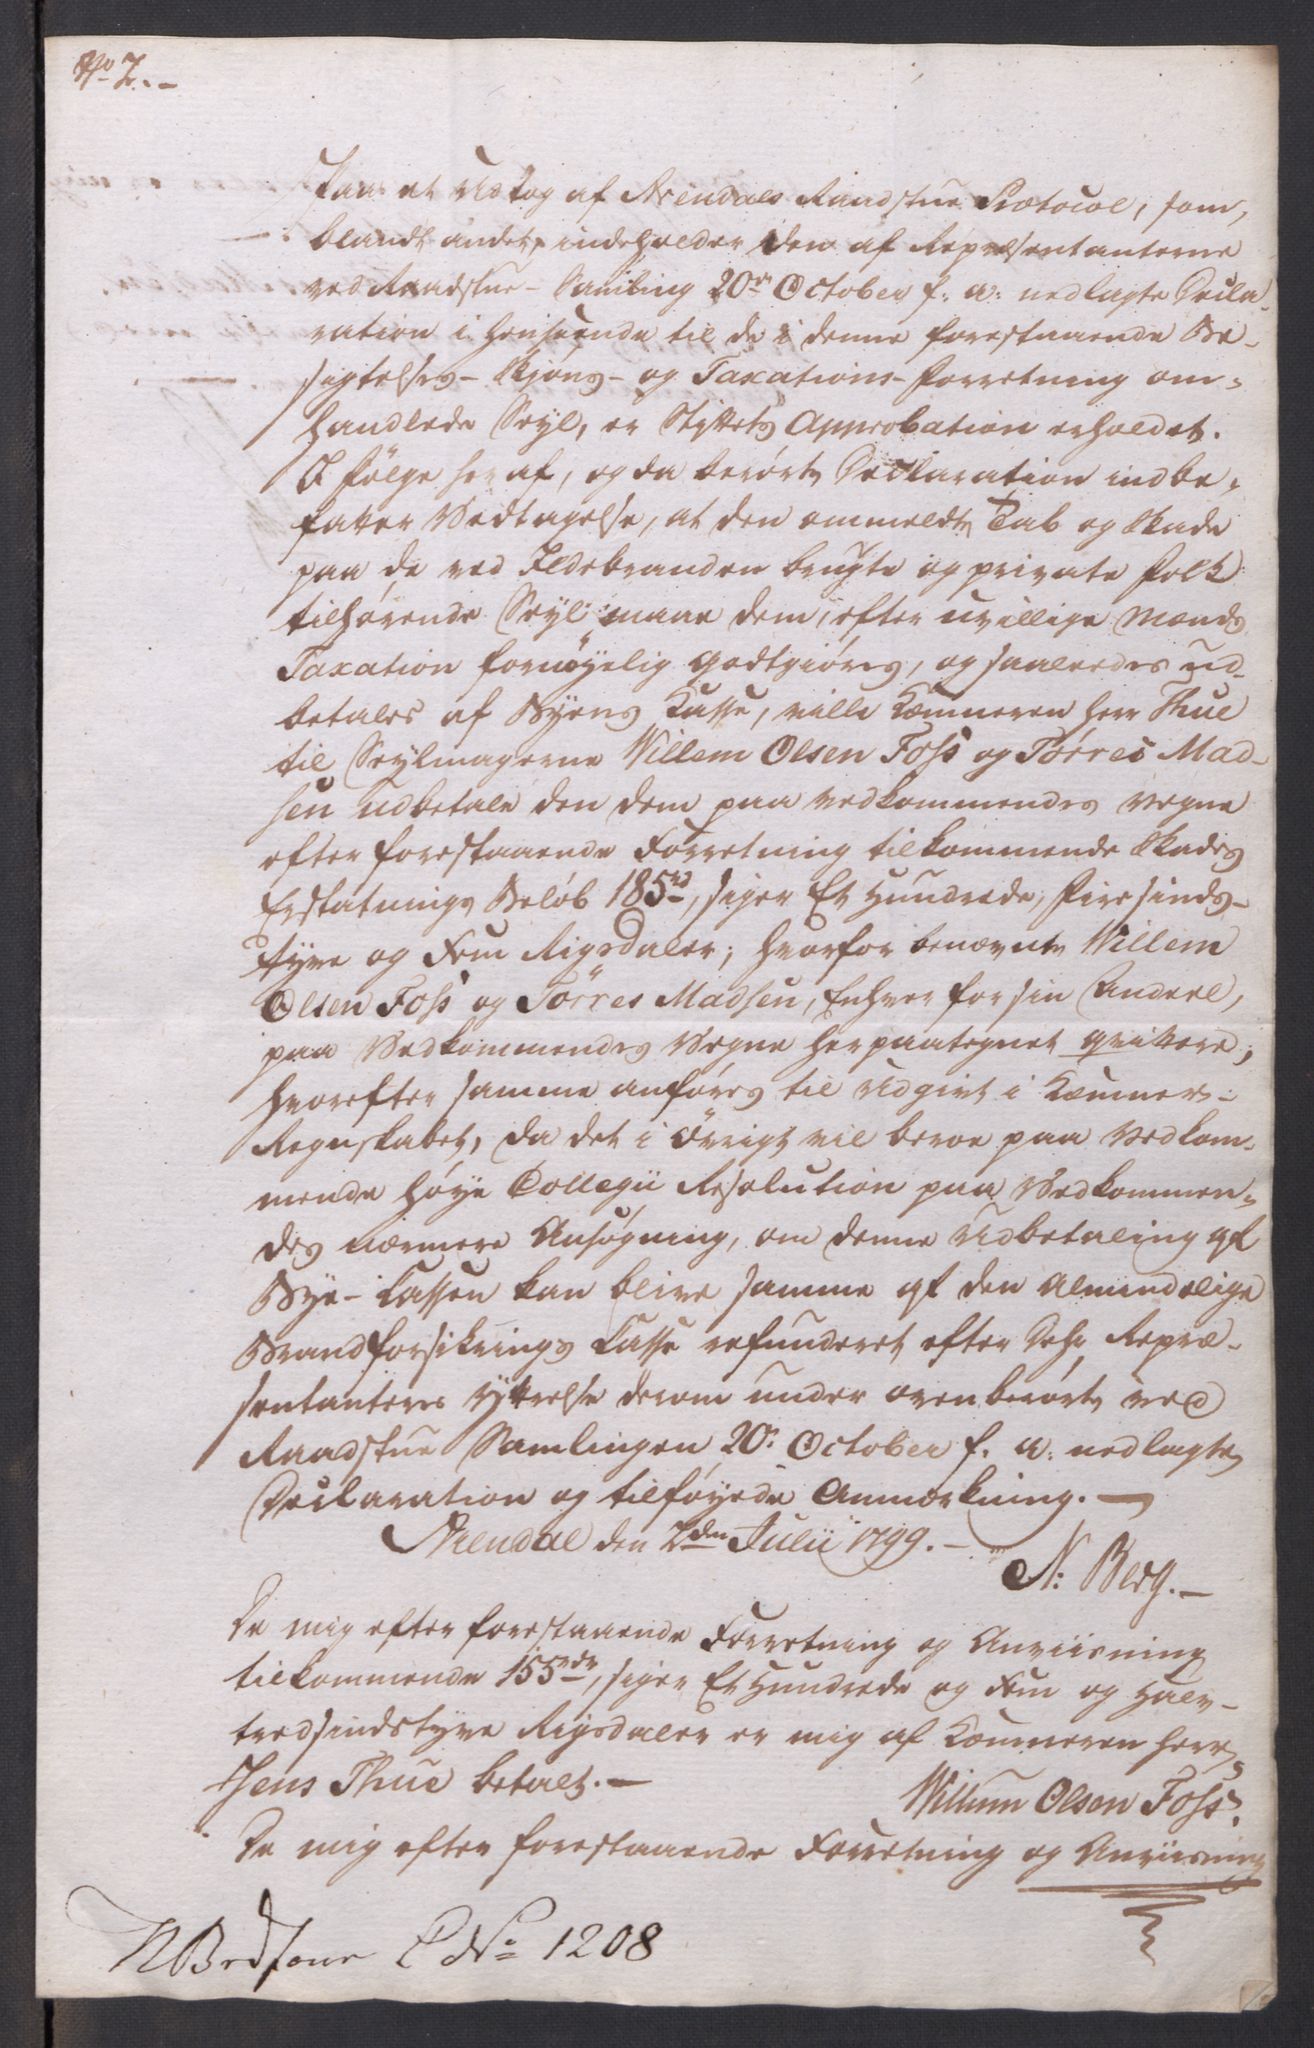 No 7.-
Paa et Udtog af Arendals Raadstue Protocol, som,
blandt andet, indeholder den af Repræsentanterne
ved Raadstue-Samling 20de October f: a: nedlagte Decla-
ration i Henseende til de i denne forestaaende Be-
sigtelses- Skjøns- og Taxations-Forretning om-
handlede Seyl, er Stiftets Approbation erholdet.
I følge heraf, og da berørte Declaration indbe-
fatter Vedtagelse, at den ommeldte Tab og Skade
paa de ved Ildebranden brugte og private Folk
tilhørende Seyl maae dem, efter uvillige Mænds
Taxation fornøyelig godtgiøres, og saaledes ud-
betales af Byens Casse, ville Kæmneren Herr Thue
til Seylmagerne Willem Olsen Foss og Törres Mad-
sen udbetale den dem paa Vedkommendes Vegne
efter forestaaende Forretning tilkommende Skades
Erstatnings Beløb 185rd, siger Et Hundrede, Firesinds-
tyve og Fem Rigsdaler; hvorfor benævnte Willem
Olsen Foss og Törres Madsen, Enhver for sin Andeel,
paa Vedkommendes Vegne herpaategnet qvittere;
hvorefter samme anføres til Udgivt i Kæmner-
Regnskabet, da det i Övrigt vil beroe paa Vedkom-
mende høye Collegii Resolution paa Vedkommen-
des nærmere Ansøgning, om denne Udbetaling af
Bye-Cassen kan blive samme af den Almindelige
Brandforsikrings Casse refunderet efter Dhr. Repræ-
sentanters Yttrelse derom under ovenberørte ved
Raadstue Samlingen 20: October f. a: nedlagte
Declaration og tilføyede Anmærkning.-
Arendal den 2den Julii 1799.-
N: Berg.-
De mig efter forestaaende Forretning og Anviisning
tilkommende 155rdr, siger Et Hundrede og Fem og Halv-
tredsindstyve Rigsdaler er mig af Kæmneren Herr
Jens Thue betalt.-
Willum Olsen Foss.
De mig efter forestaaende Forretning og Anviisning
No 1208